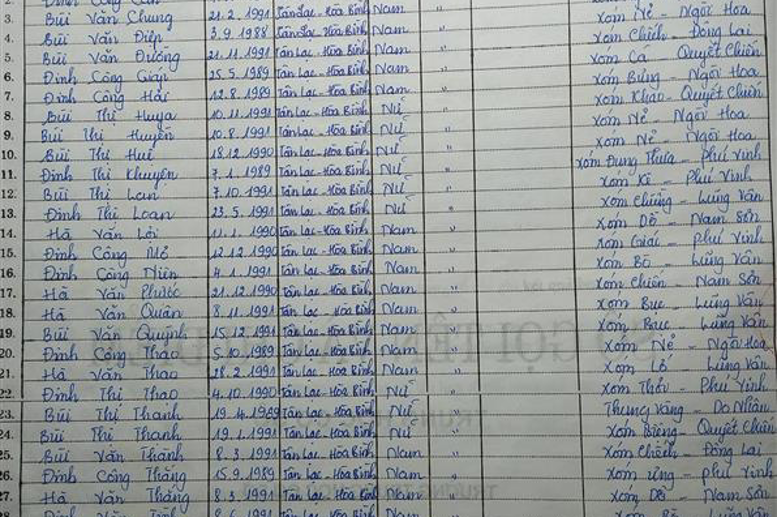 2. Đinh Công
3. Bùi Văn Chung 21.2.1991 Tân Lạc-Hòa Bình Nam " Xóm Nẻ - Ngòi Hoa
4. Bùi Văn Điệp 3.9.1988 Tân Lạc-Hòa Bình Nam " Xóm Chiềh - Đông Lai
5. Bùi Văn Đường 21.11.1991 Tân Lạc-Hòa Bình Nam " Xóm Cá - Quyết Chiến
6. Đinh Công Giáp 25.5.1989 Tân Lạc-Hòa Bình Nam " Xóm Bưng - Ngòi Hoa
7. Đinh Công Hải 12.8.1989 Tân Lạc-Hòa Bình Nam " Xóm Khao - Quyết Chiến
8. Bùi Thị Huya 10.11.1991 Tân Lạc-Hòa Bình Nữ " Xóm Nẻ - Ngòi Hoa
9. Bùi Thị Huyền 10.8.1991 Tân Lạc-Hòa Bình Nữ " Xóm Nẻ - Ngòi Hoa
10. Bùi Thị Huê 18.12.1990 Tân Lạc-Hòa Bình Nữ " Xóm Đung Thừa - Phú Vinh
11. Đinh Thị Khuyên 7.1.1989 Tân Lạc-Hòa Bình Nữ " Xóm Kè - Phú Vinh
12. Bùi Thị Lan 7.10.1991 Tân Lạc-Hòa Bình Nữ " Xóm Chiềng - Lũng Vân
13. Đinh Thị Loan 23.5.1991 Tân Lạc-Hòa Bình Nữ " Xóm Dồ - Nam Sơn
14. Hà Văn Lợi 11.1.1990 Tân Lạc-Hòa Bình Nam " Xóm Giác - Phú Vinh
15. Đinh Công Mỏ 12.12.1990 Tân Lạc-Hòa Bình Nam " Xóm Bo - Lũng Vân
16. Đinh Công Niên 4.1.1991 Tân Lạc-Hòa Bình Nam " Xóm Chiến - Nam Sơn
17. Hà Văn Phước 21.12.1990 Tân Lạc-Hòa Bình Nam " Xóm Bục - Lũng Vân
18. Hà Văn Quân 8.11.1991 Tân Lạc-Hòa Bình Nam " Xóm Bục - Lũng Vân
19. Bùi Văn Quỳnh 15.12.1991 Tân Lạc-Hòa Bình Nam " Xóm Nẻ - Ngòi Hoa
20. Đinh Công Thao 5.10.1989 Tân Lạc-Hòa Bình Nam " Xóm Lố - Lũng Vân
21. Hà Văn Thao 28.2.1991 Tân Lạc-Hòa Bình Nam " Xóm Thỏi - Phú Vinh
22. Đinh Thị Thao 4.10.1990 Tân Lạc-Hòa Bình Nữ " Thung Vàng - Do Nhân
23. Bùi Thị Thanh 19.4.1989 Tân Lạc-Hòa Bình Nữ " Xóm Biêng - Quyết Chiến
24. Bùi Thị Thanh 19.1.1991 Tân Lạc-Hòa Bình Nữ " Xóm Chiềh - Đông Lai
25. Bùi Văn Thành 8.3.1991 Tân Lạc-Hòa Bình Nam " Xóm ưng - Phú Vinh
26. Đinh Công Thắng 15.9.1989 Tân Lạc-Hòa Bình Nam " Xóm Dồ - Nam Sơn
27. Hà Văn Thắng 8.3.1991 Tân Lạc-Hòa Bình Nam " Lũng Vân